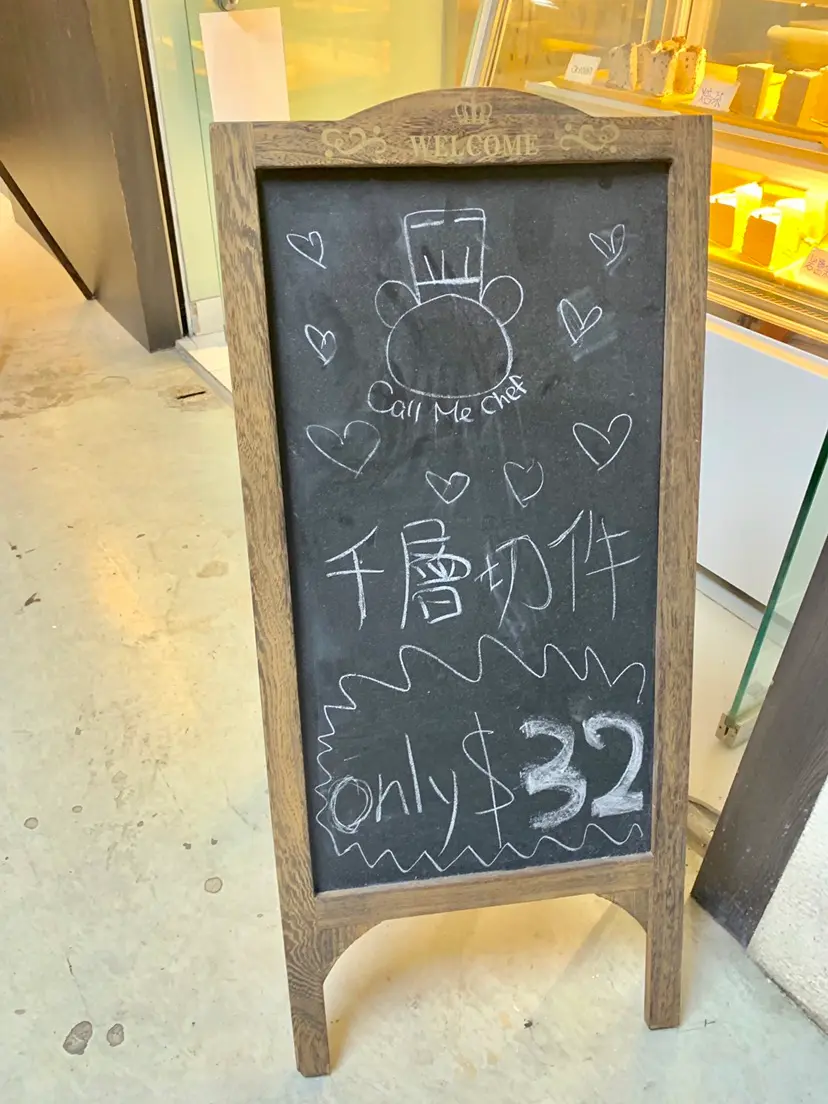 WELCOME
Call Me Chef
千層切件
only $32